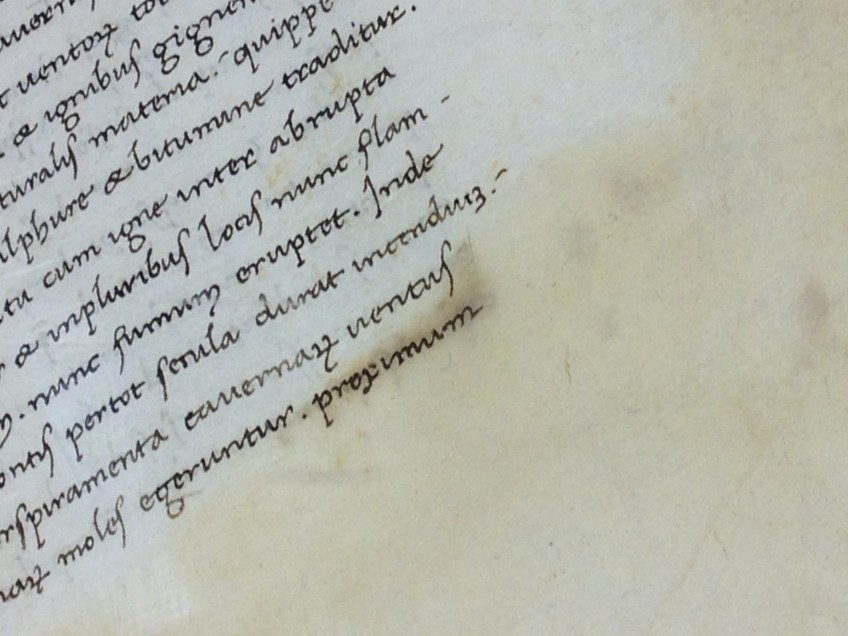 t uentoꝝ
& ignibus gignen
turalis materia. quippe
ulphure & bitumine traditur.
cum igne inter abrupta
& inpluribus locis nunc flam-
nunc fumum eruptet. Inde
ontis pertot secula durat incendiuꝫ.-
spiramenta cauernaꝝ uentus
naꝝ moles egeruntur. proximum